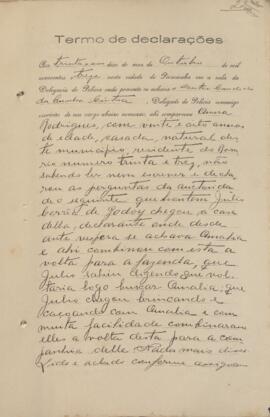 Termo de declarações
Aos trinta e um dias do mez de Outubro de mil
novecentos e treze nesta cidade de Piracicaba em a sala da
Delegacia de Policia onde presente se achava o Doutor
Delegado de Policia commigo
escrivão de seu cargo abaixo nomeado, ahi compareceu Anna
Rodrigues, com vinte e oito annos
de edade, casada, natural des-
te municipio, residente do Bair-
ro numero trinta e tres, não
sabendo ler nem escrever e decla-
rou as perguntas da auctoridade
do seguinte que hontem Julio
Corrêa de Godoy chegou a casa
della, declarante onde desde
ante vespera se achava Amalia
e ahi combinou com esta a
volta para a fazenda, que
Julio sahiu dizendo que vol-
taria logo buscar Amalia; que
Julio chegou brincando e
caçoando com Amalia e com
muita facilidade combinaram
elles a volta desta para a com-
panhia delle. Nada mais disse.
Lido e achado conforme assigna